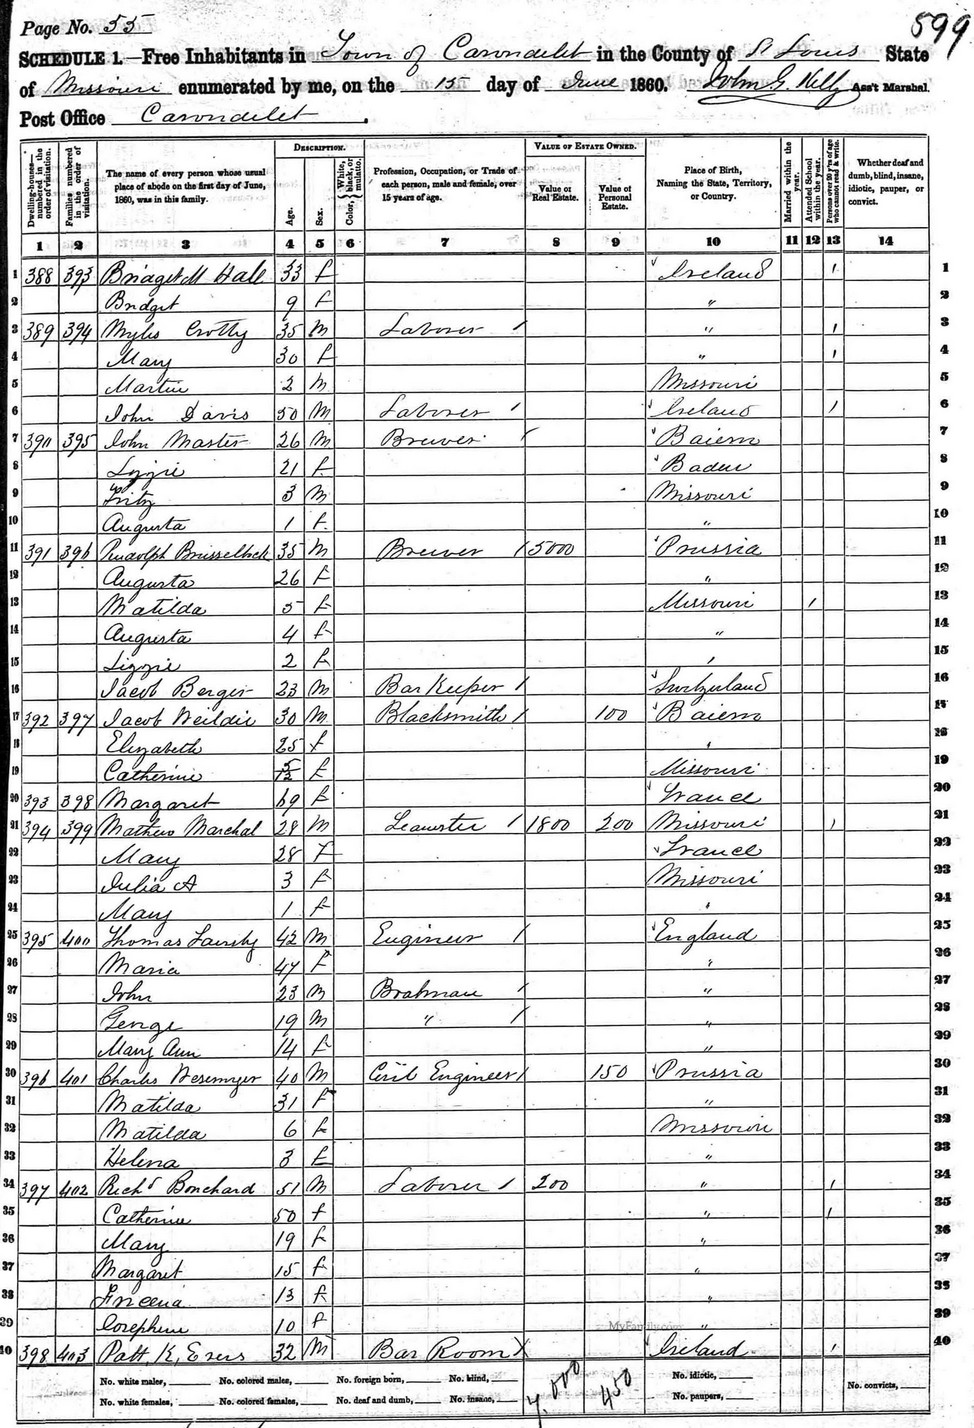 Page No. 55
599
SCHEDULE 1.—Free Inhabitants in Town of Carondelet in the County of St Louis State
of Missouri enumerated by me, on the 15 day of June 1860. John G. Kelly Ass't Marshal.
Post Office Carondelet.
Dwelling-house—numbered in the order of visitation.
Families numbered in the order of visitation.
The name of every person whose usual place of abode on the first day of June, 1860, was in this family.
DESCRIPTION.
Age.
Sex.
Color, White, black, or mulatto.
Profession, Occupation, or Trade of each person, male and female, over 15 years of age.
VALUE OF ESTATE OWNED.
Value of Real Estate.
Value of Personal Estate.
Place of Birth, Naming the State, Territory, or Country.
Married within the year.
Attended School within the year.
Persons over 20 y'rs of age who cannot read & write.
Whether deaf and dumb, blind, insane, idiotic, pauper, or convict.
1 2 3 4 5 6 7 8 9 10 11 12 13 14
1 388 393 Bridget M Hall 33 f Ireland / 1
2 Bridget 9 f " 2
3 389 394 Myles Crotty 35 m Laborer / " / 3
4 Mary 30 f " / 4
5 Martin 2 m Missouri 5
6 John Davis 50 m Laborer / Ireland / 6
7 390 395 John Master 26 m Brewer / Baiern 7
8 Lizzie 21 f Baden 8
9 Fritz 3 m Missouri 9
10 Augusta 1 f " 10
11 391 396 Rudolph 35 m Brewer / 5000 Prussia 11
12 Augusta 26 f " 12
13 Matilda 5 f Missouri / 13
14 Augusta 4 f " 14
15 Lizzie 2 f " 15
16 Jacob Berger 23 m Bar Keeper / Switzerland 16
17 392 397 Jacob Weildie 30 m Blacksmith / 100 Baiern 17
18 Elizabeth 25 f " 18
19 Catherine 5/12 f Missouri 19
20 393 398 Margaret 69 f France 20
21 394 399 Mathew Marchal 28 m / 1800 200 Missouri / 21
22 Mary 28 F France 22
23 Julia A 3 f Missouri 23
24 Mary 1 f " 24
25 395 400 Thomas 42 m Engineer / England 25
26 Maria 47 f " 26
27 John 23 m Brakman / " 27
28 George 19 m " / " 28
29 Mary Ann 14 f " 29
30 396 401 Charles Wesemyer 40 m Civil Engineer / 150 Prussia 30
31 Matilda 31 f " 31
32 Matilda 6 f Missouri 32
33 Helena 3 f " 33
34 397 402 Richd Bouchard 51 m Laborer / 200 " / 34
35 Catherine 50 f " / 35
36 Mary 19 f " 36
37 Margaret 15 f " 37
38 13 f " 38
39 Josephine 10 f " 39
40 398 403 Patt K, Evers 32 m Bar Room X Ireland / 40
MyFamily.com
No. white males, No. colored males, No. foreign born, No. blind, No. idiotic,
No. white females, No. colored females, No. deaf and dumb, No. insane, 7,000 450 No. paupers, No. convicts,